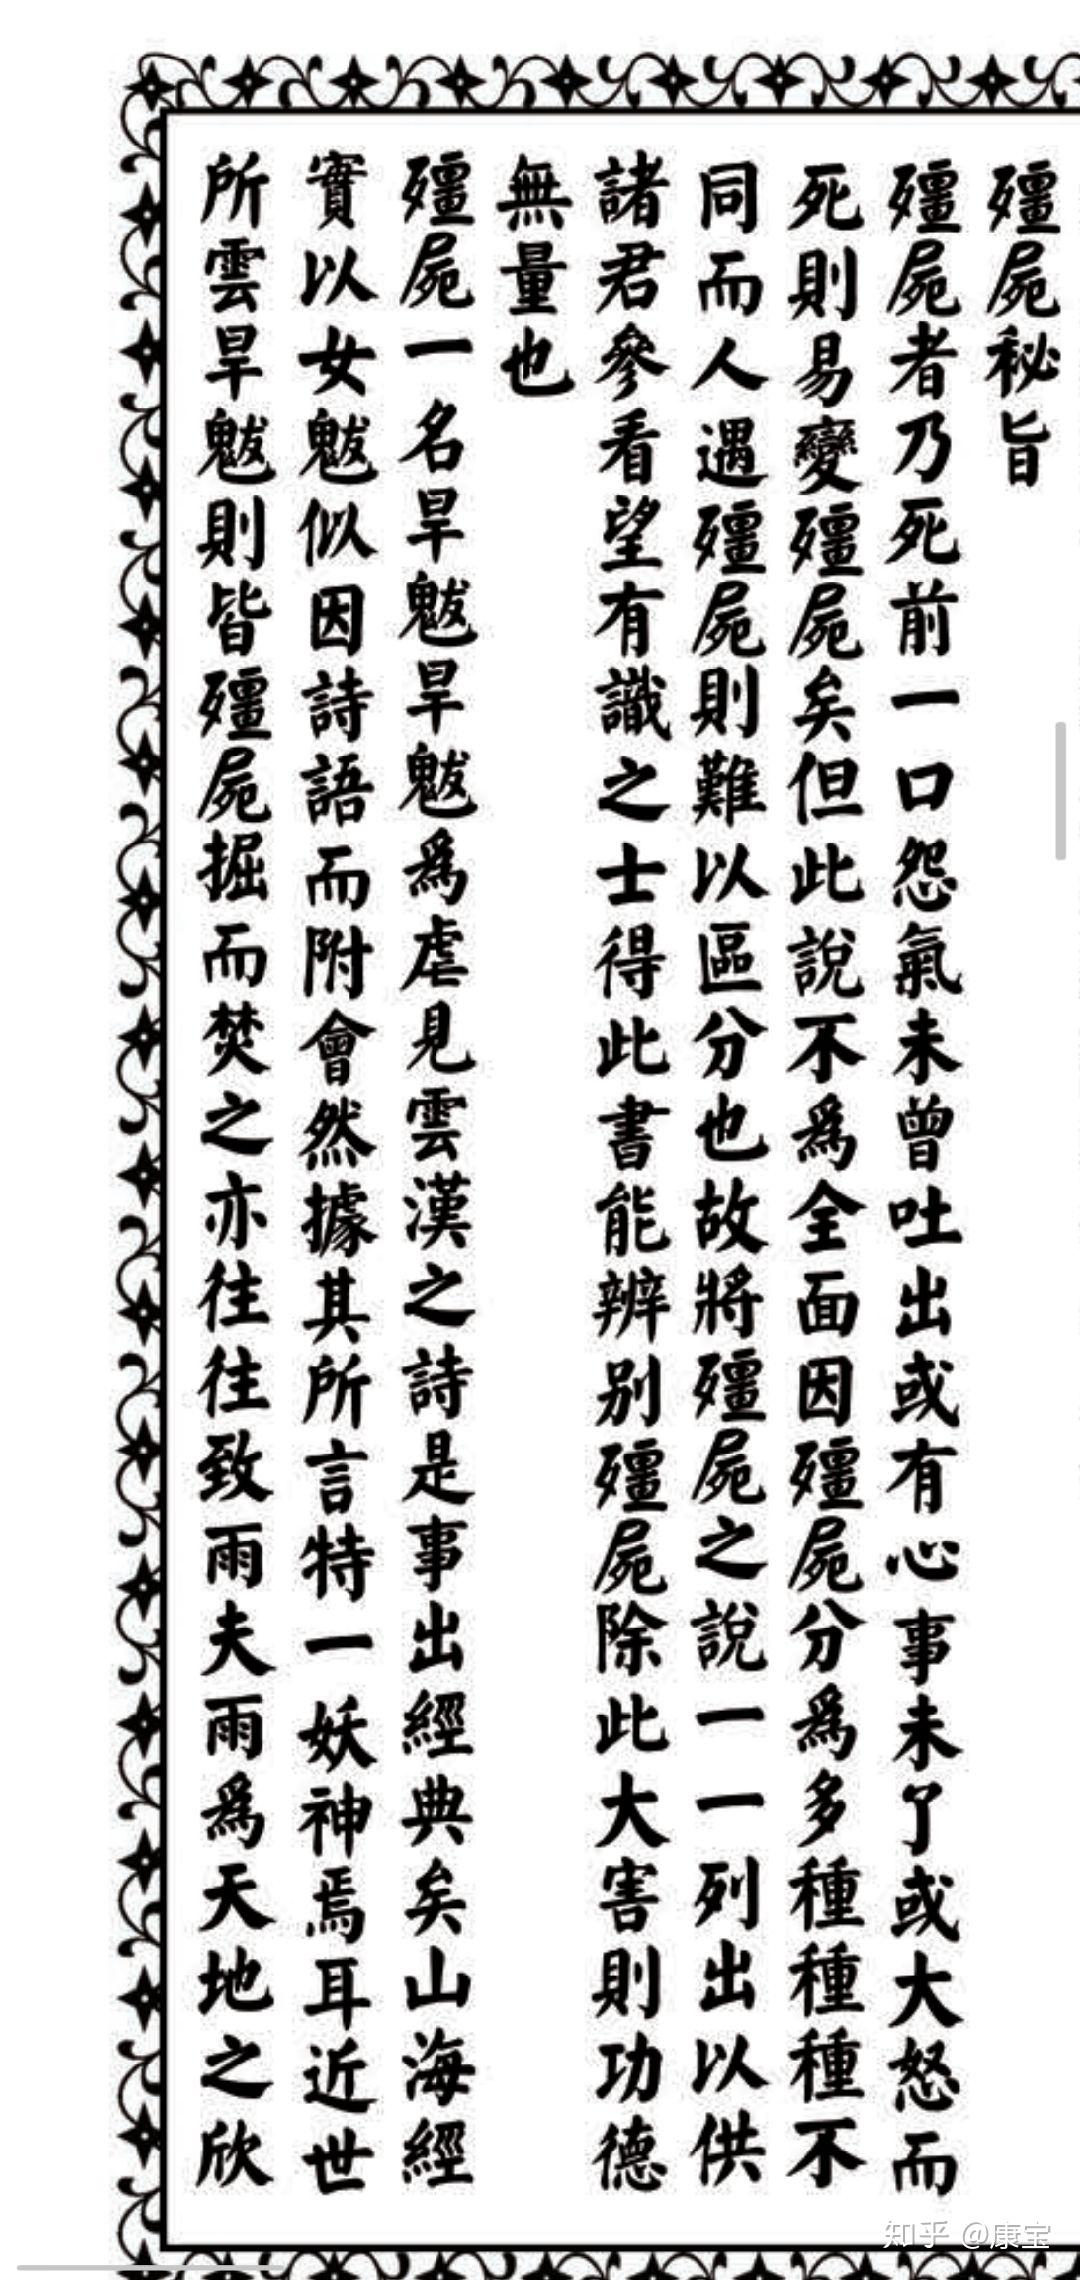 殭屍秘旨
殭屍者乃死前一口怨氣未曾吐出或有心事未了或大怒而
死則易變殭屍矣但此說不爲全面因殭屍分爲多種種種不
同而人遇殭屍則難以區分也故將殭屍之說一一列出以供
諸君參看望有識之士得此書能辨別殭屍除此大害則功德
無量也
殭屍一名旱魃旱魃爲虐見雲漢之詩是事出經典矣山海經
實以女魃似因詩語而附會然據其所言特一妖神焉耳近世
所雲旱魃則皆殭屍掘而焚之亦往往致雨夫雨爲天地之欣
知乎 @康宝